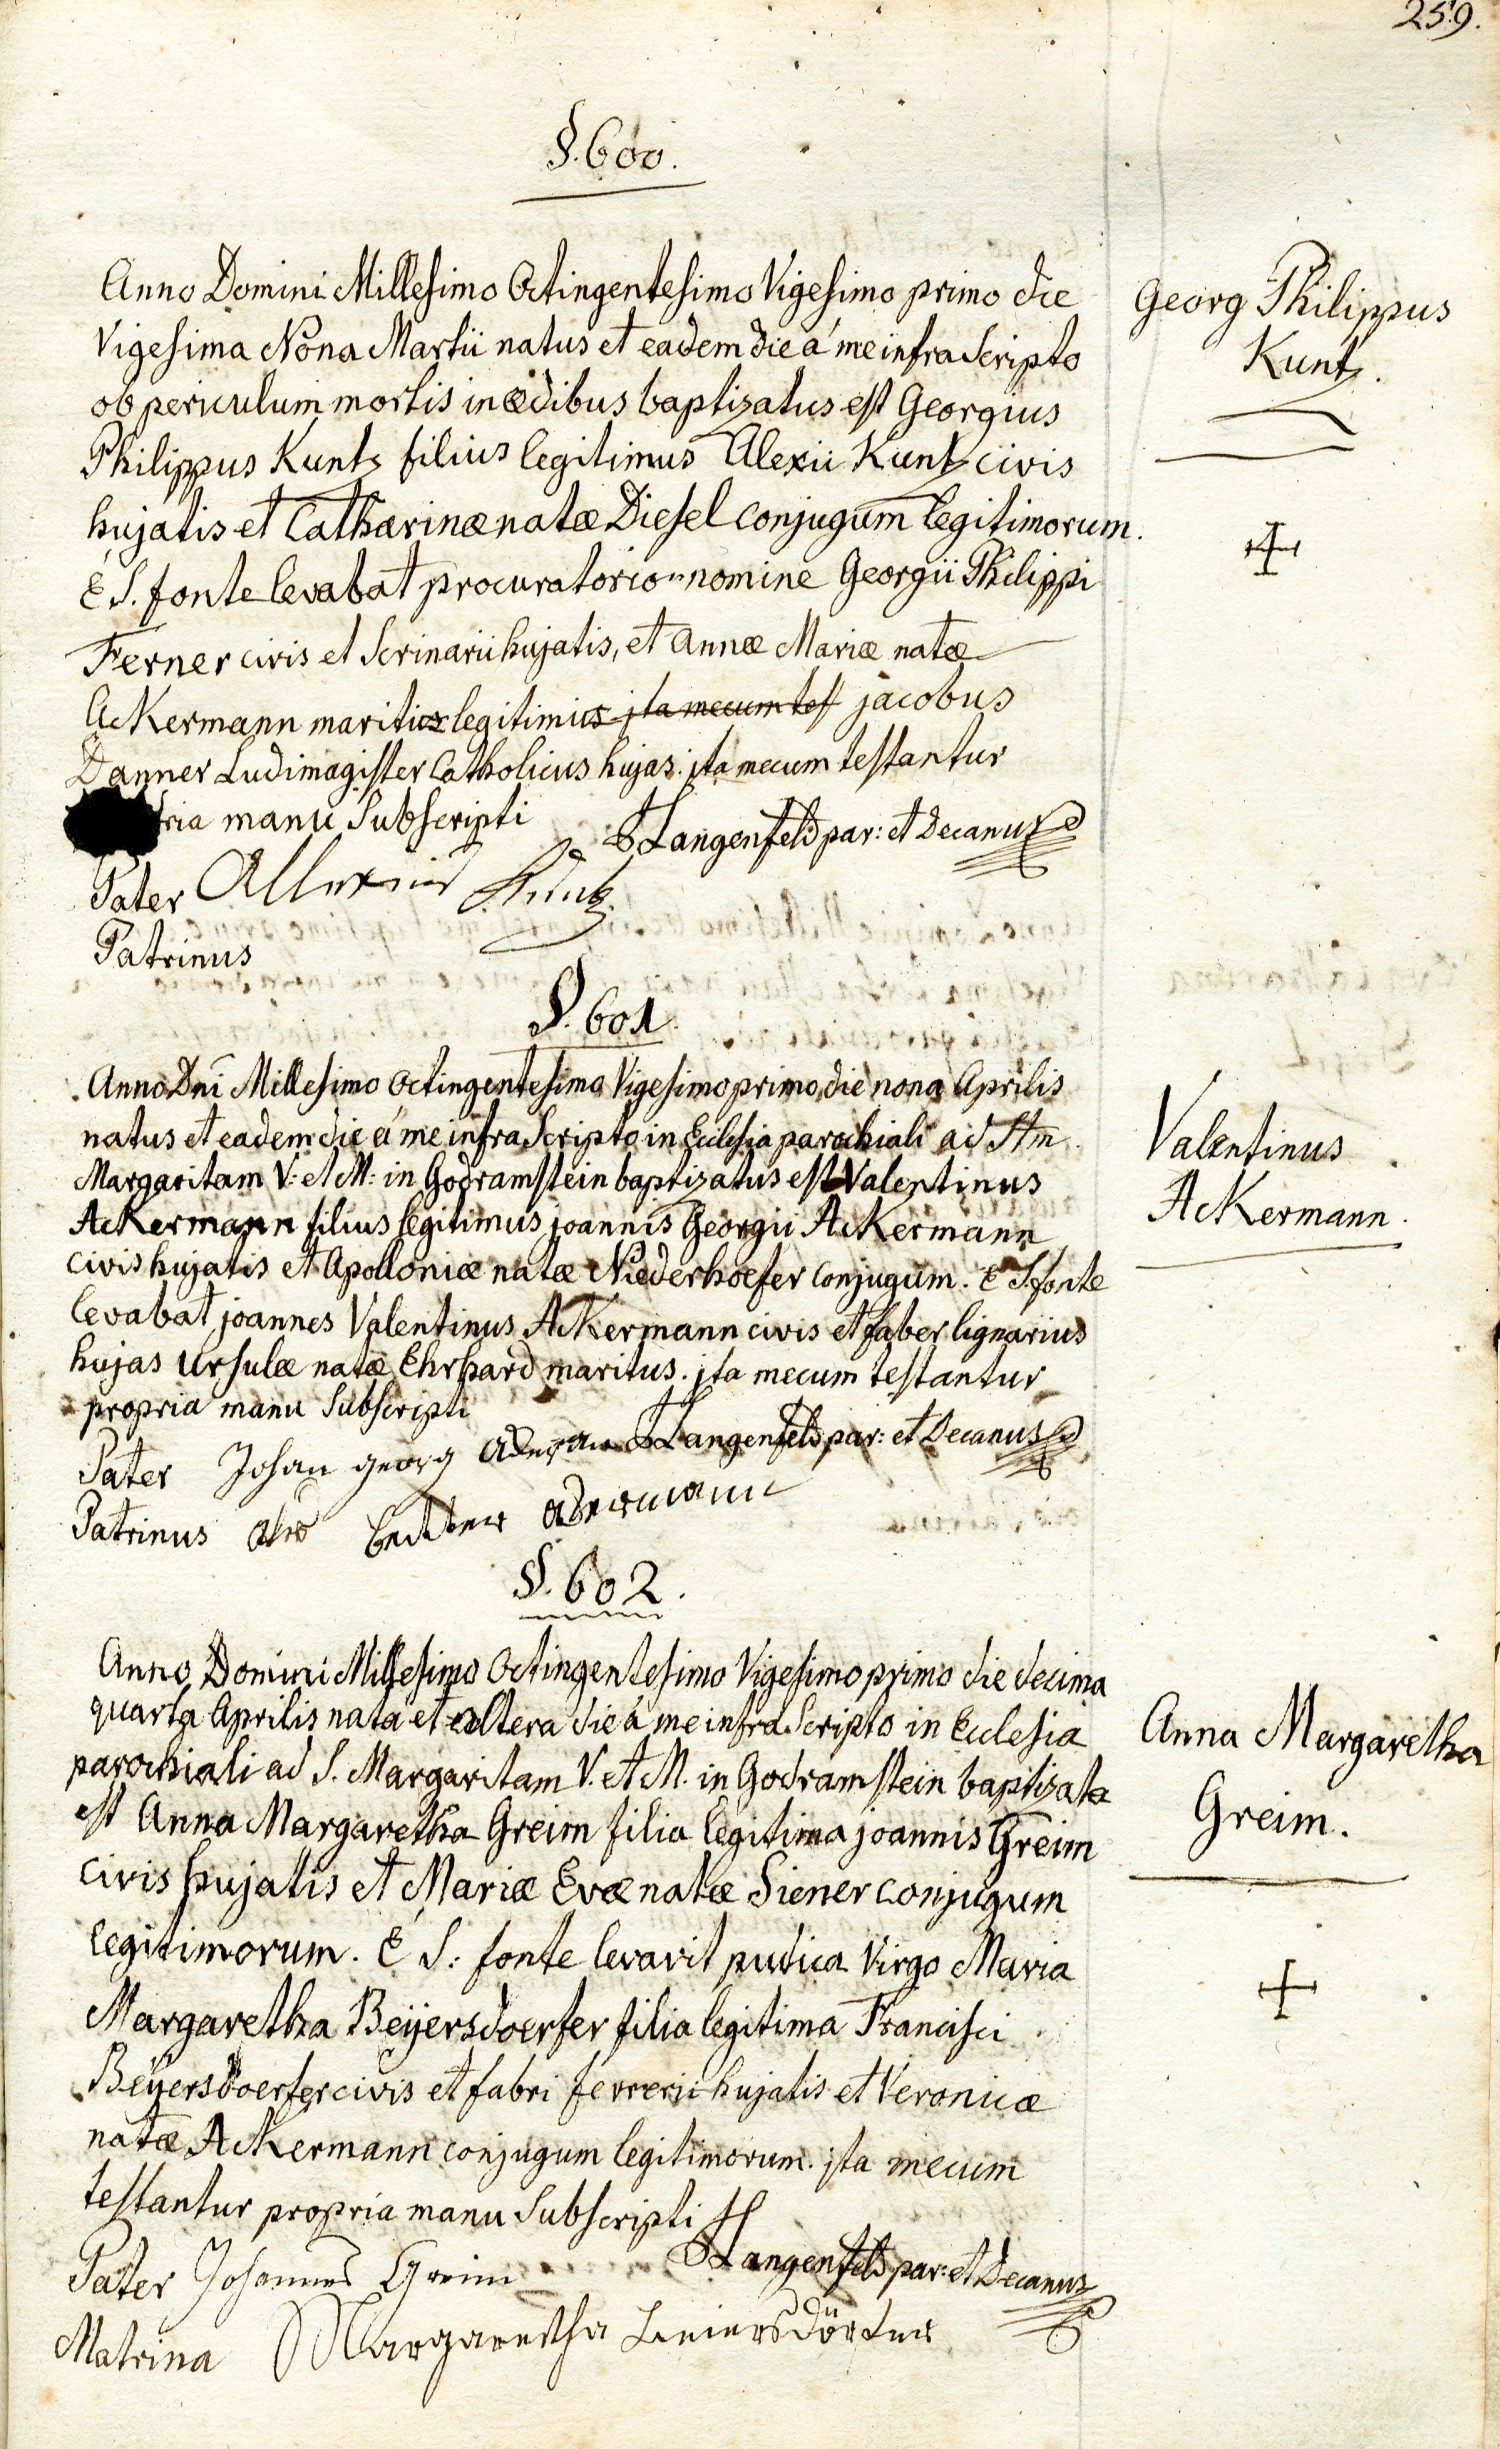 259.
§. 600.
Anno Domini Millesimo Octingentesimo Vigesimo primo die
Vigesima Nona Martii natus et eadem die á me infra Scripto
ob periculum mortis in ædibus baptizatus est Georgius
Philippus Kuntz filius legitimus Alexii Kuntz civis
hujatis et Catharinæ natæ Diesel conjugum legitimorum.
É S. fonte levabat procuratorio nomine Georgii Philippi
Ferner civis et Scrinarii hujatis, et Annæ Mariæ natæ
Ackermann maritus legitimus jta mecum test jacobus
Danner Ludimagister Catholicus hujas. jta mecum testantur
ria manu Subscripti
Langenfeld par: et Decanus
Pater Allexius Kuntz.
Patrinus
Georg Philippus
Kuntz.
§. 601.
Anno Dni Millesimo Octingentesimo Vigesimo primo die nona Aprilis
natus et eadem die á me infra Scripto in Ecclesia parochiali ad Stm
Margaritam V: et M: in Godramstein baptizatus est Valentinus
Ackermann filius legitimus joannis Georgii Ackermann
civis hujatis et Apolloniæ natæ Niederhoefer conjugum. É S fonte
levabat joannes Valentinus Ackermann civis et faber lignarius
hujas Ursulæ natæ Ehrhard maritus. jta mecum testantur
propria manu Subscripti
Langenfeld par: et Decanus
Pater Johan georg
Patrinus
Valentinus
Ackermann.
§. 602.
Anno Domini Millesimo Octingentesimo Vigesimo primo die decima
quarta Aprilis nata et altera die á me infra Scripto in Ecclesia
parochiali ad S. Margaritam V. et M. in Godramstein baptizata
est Anna Margaretha Greim filia legitima joannis Greim
civis hujatis et Mariæ Evæ natæ Siener conjugum
legitimorum. É S: fonte levavit pudica Virgo Maria
Margaretha Beÿersdoerfer filia legitima Francisci
Beÿersdoerfer civis et fabri ferrerii hujatis et Veronicæ
natæ Ackermann conjugum legitimorum. jta mecum
testantur propria manu Subscripti
Langenfeld par: et Decanus
Pater Johannes Greim
Matrina Margaretha Beiersdörfer
Anna Margaretha
Greim.